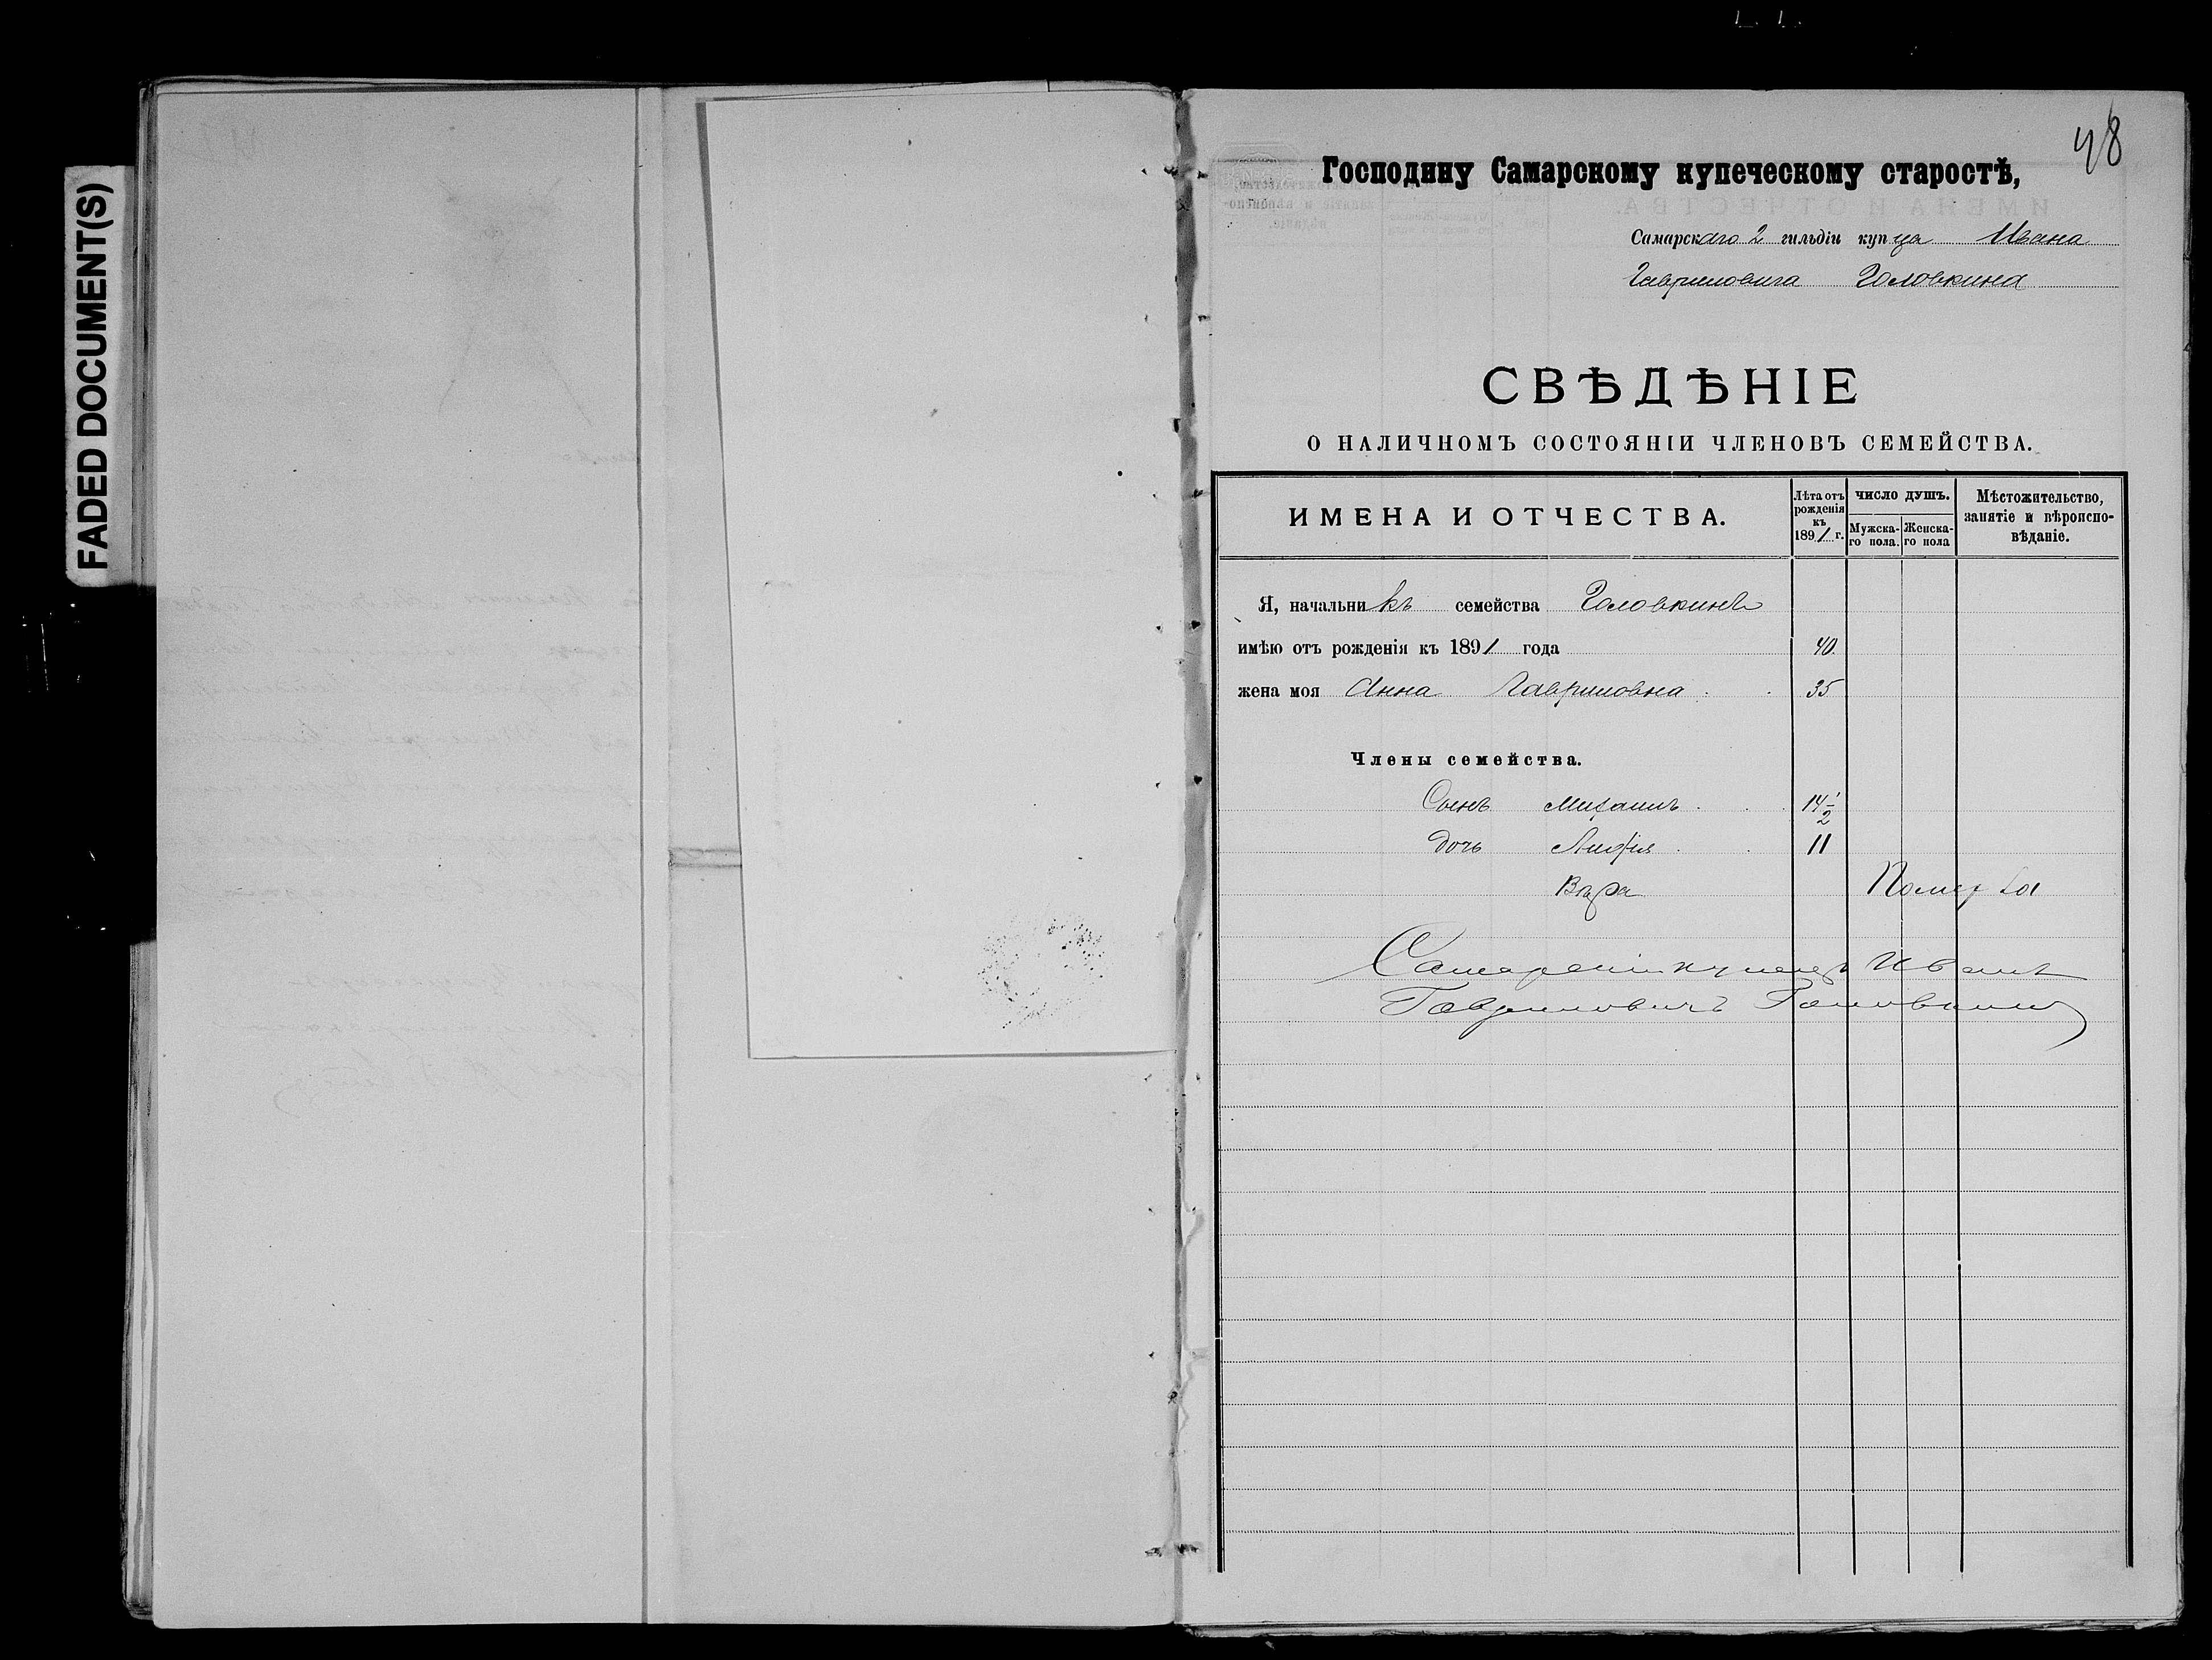 FADED DOCUMENT(S)
48
Господину Самарскому купеческому старостѣ,
Самарскаго 2 гильдіи купца Ивана
Гавриловича Головкина
СВѢДѢНІЕ
О НАЛИЧНОМЪ СОСТОЯНІИ ЧЛЕНОВЪ СЕМЕЙСТВА.
ИМЕНА И ОТЧЕСТВА.
Лѣта отъ рожденія къ 1891 г.
ЧИСЛО ДУШЪ.
Мужска-го пола.
Женска-го пола
Мѣстожительство, занятіе и вѣроиспо-вѣданіе.
Я, начальникъ семейства Головкинъ
имѣю отъ рожденія къ 1891 года 40
жена моя Анна Гавриловна 35
Члены семейства.
Сынъ Михаилъ 14 1/2
дочь 11
Вѣра Померла
Самарскій купецъ Иванъ
Гавриловичъ Головкинъ